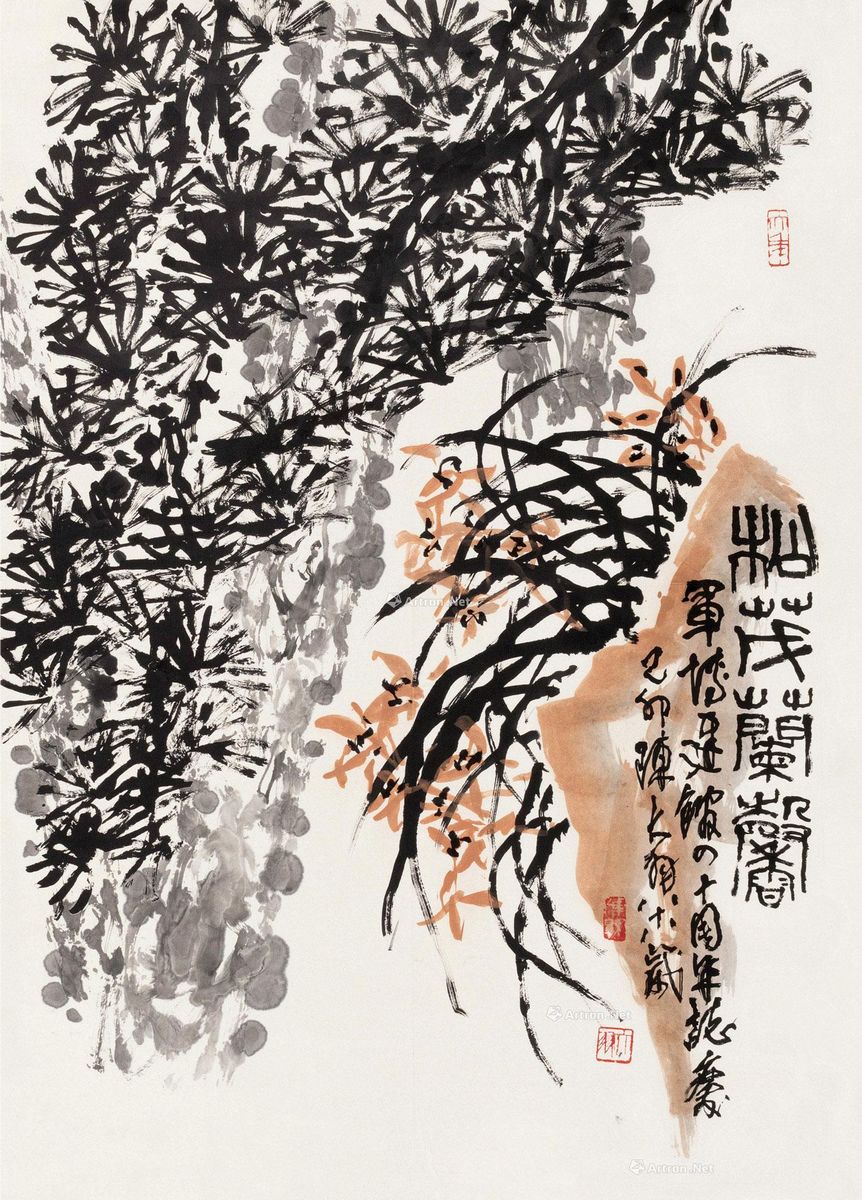 松茂蘭馨
軍博建館四十周年誌慶
己卯陳大羽八十八歲
Artron.Net
Artron.Net
Artron.Net